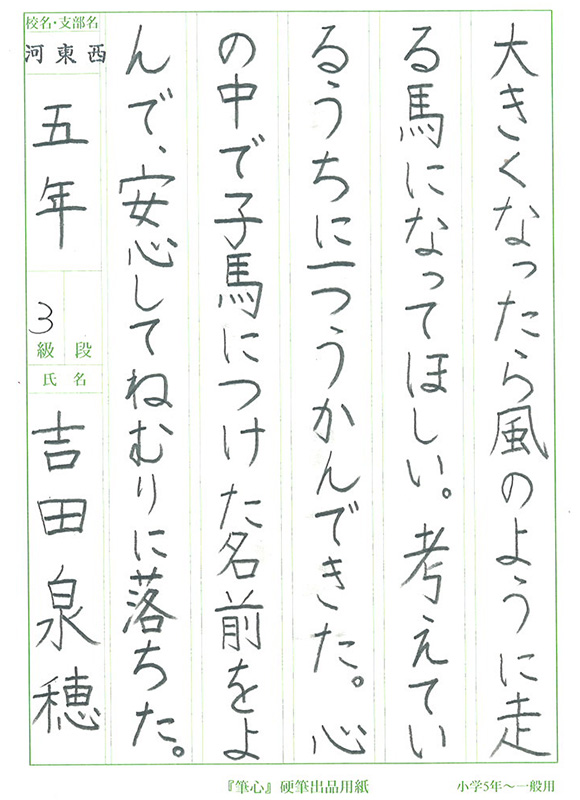 大きくなったら風のように走
る馬になってほしい。考えてい
るうちに一つうかんできた。心
の中で子馬につけた名前をよ
んで、安心してねむりに落ちた。
校名・支部名
河東西
五年
3
級段
氏名
吉田泉穂
『筆心』硬筆出品用紙
小学5年～一般用